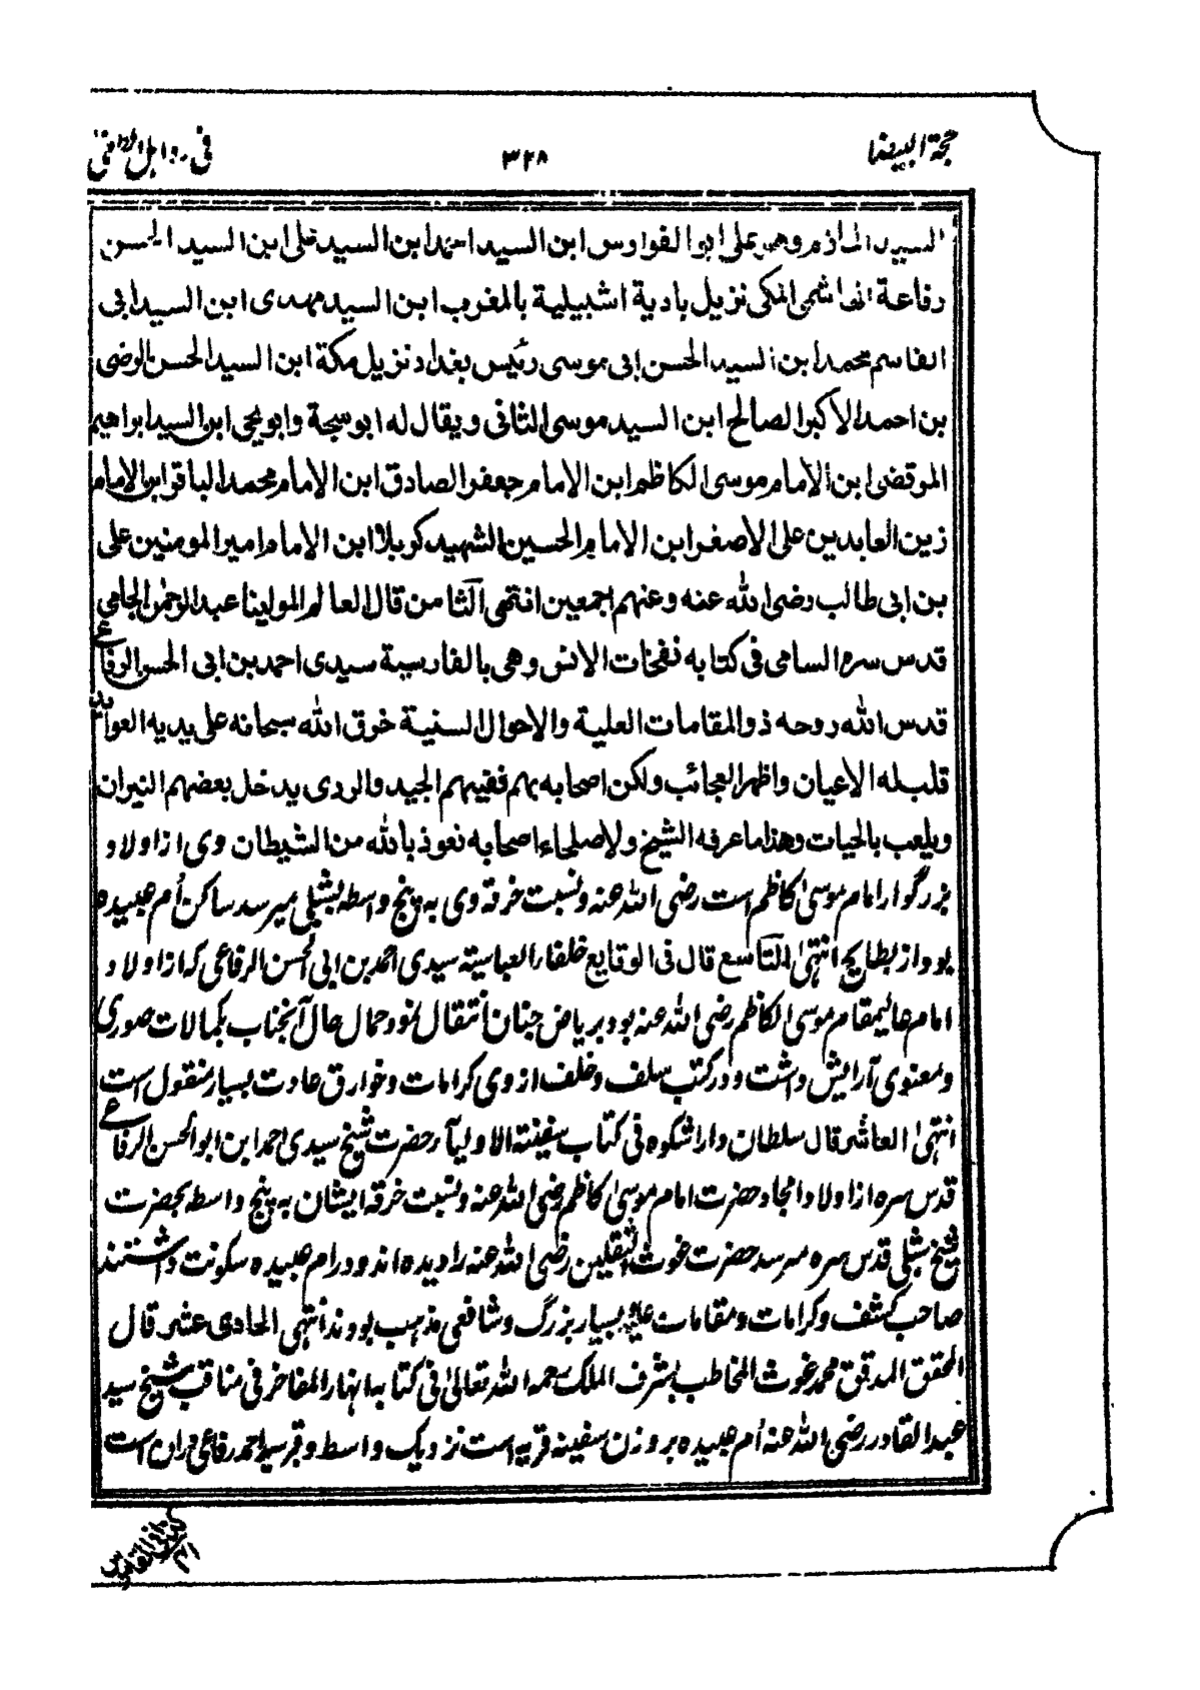 حجة البيضا ٣٢٨ فى
السيد الحازم وهو على ابو الفوارس ابن السيد احمد ابن السيد على ابن السيد الحسن
رفاعة الهاشمى المكى نزيل بادية اشبيلية بالمغرب ابن السيد مهدى ابن السيد ابى
القاسم محمد ابن السيد الحسن ابى موسى رئيس بغداد نزيل مكة ابن السيد الحسن الرضى
بن احمد الاكبر الصالح ابن السيد موسى الثانى ويقال له ابو سبحة وابو يحيى ابن السيد ابراهيم
المرتضى ابن الامام موسى الكاظم ابن الامام جعفر الصادق ابن الامام محمد الباقر ابن الامام
زين العابدين على الاصغر ابن الامام الحسين الشهيد كربلا ابن الامام امير المومنين على
بن ابى طالب رضى الله عنه وعنهم اجمعين انتهى الثامن قال العالم المولينا عبد الرحمن الجامى
قدس سره السامى فى كتابه نفحات الانس وهى بالفارسية سيدى احمد بن ابى الحسن الرفاعى
قدس الله روحه ذو المقامات العلية والاحوال السنية خرق الله سبحانه على يديه العوائد
قلب له الاعيان واظهر العجائب ولكن اصحابه بهم ففيهم الجيد والردى يدخل بعضهم النيران
ويلعب بالحيات وهذا ما عرفه الشيخ ولا صلحاء اصحابه نعوذ بالله من الشيطان وى از اولاد
بزرگوار امام موسى كاظم است رضى الله عنه ونسبت خرقه وى به پنج واسطه بشبلى ميرسد ساكن أم عبيده
بود از بطايح انتهى التاسع قال فى الوقايع خلفاء العباسية سيدى احمد بن ابى الحسن الرفاعى كه از اولاد
امام عاليمقام موسى الكاظم رضى الله عنه بود برياض جنان انتقال نمود جمال حال آنجناب بكمالات صورى
ومعنوى آرايش داشت ودر كتب سلف وخلف از وى كرامات وخوارق عادت بسيار منقول است
انتهى العاشر قال سلطان دارا شكوه فى كتاب سفينة الاوليآء حضرت شيخ سيدى احمد ابن ابو الحسن الرفاعى
قدس سره از اولاد امجاد حضرت امام موسى كاظم رضى الله عنه ونسبت خرقه ايشان به پنج واسطه بحضرت
شيخ شبلى قدس سره ميرسد حضرت غوث الثقلين رضى الله عنه را ديده اند ودر ام عبيده سكونت داشتند
صاحب كشف وكرامات ومقامات عليه بسيار بزرگ وشافعى مذهب بودند انتهى الحادى عشر قال
المحقق المدقق محمد غوث المخاطب بشرف الملك رحمه الله تعالى فى كتابه انهار المفاخر فى مناقب شيخ سيد
عبد القادر رضى الله عنه أم عبيده بر وزن سفينه قريه است نزديك واسط وقبر سيد احمد رفاعى دران است